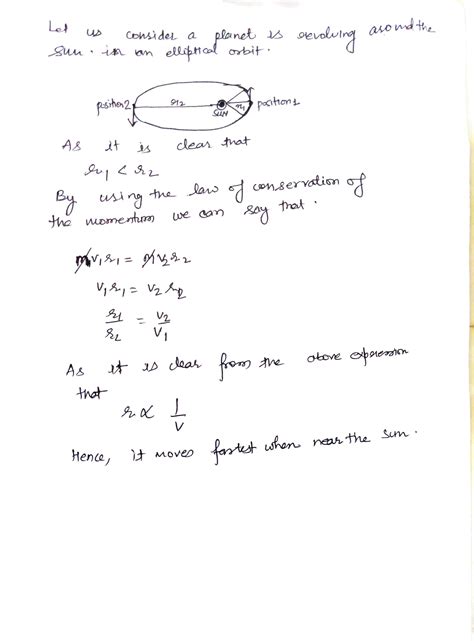 Let us consider a planet is revolving around the
sun. in an elliptical orbit.
position2 r2 SUN r1 position1
As it is clear that
r1 < r2
By using the law of conservation of
the momentum we can say that.
mv1r1 = mv2r2
v1r1 = v2r2
r1/r2 = v2/v1
As it is clear from the above expression
that
r ∝ 1/v
Hence, it moves fastest when near the sun.